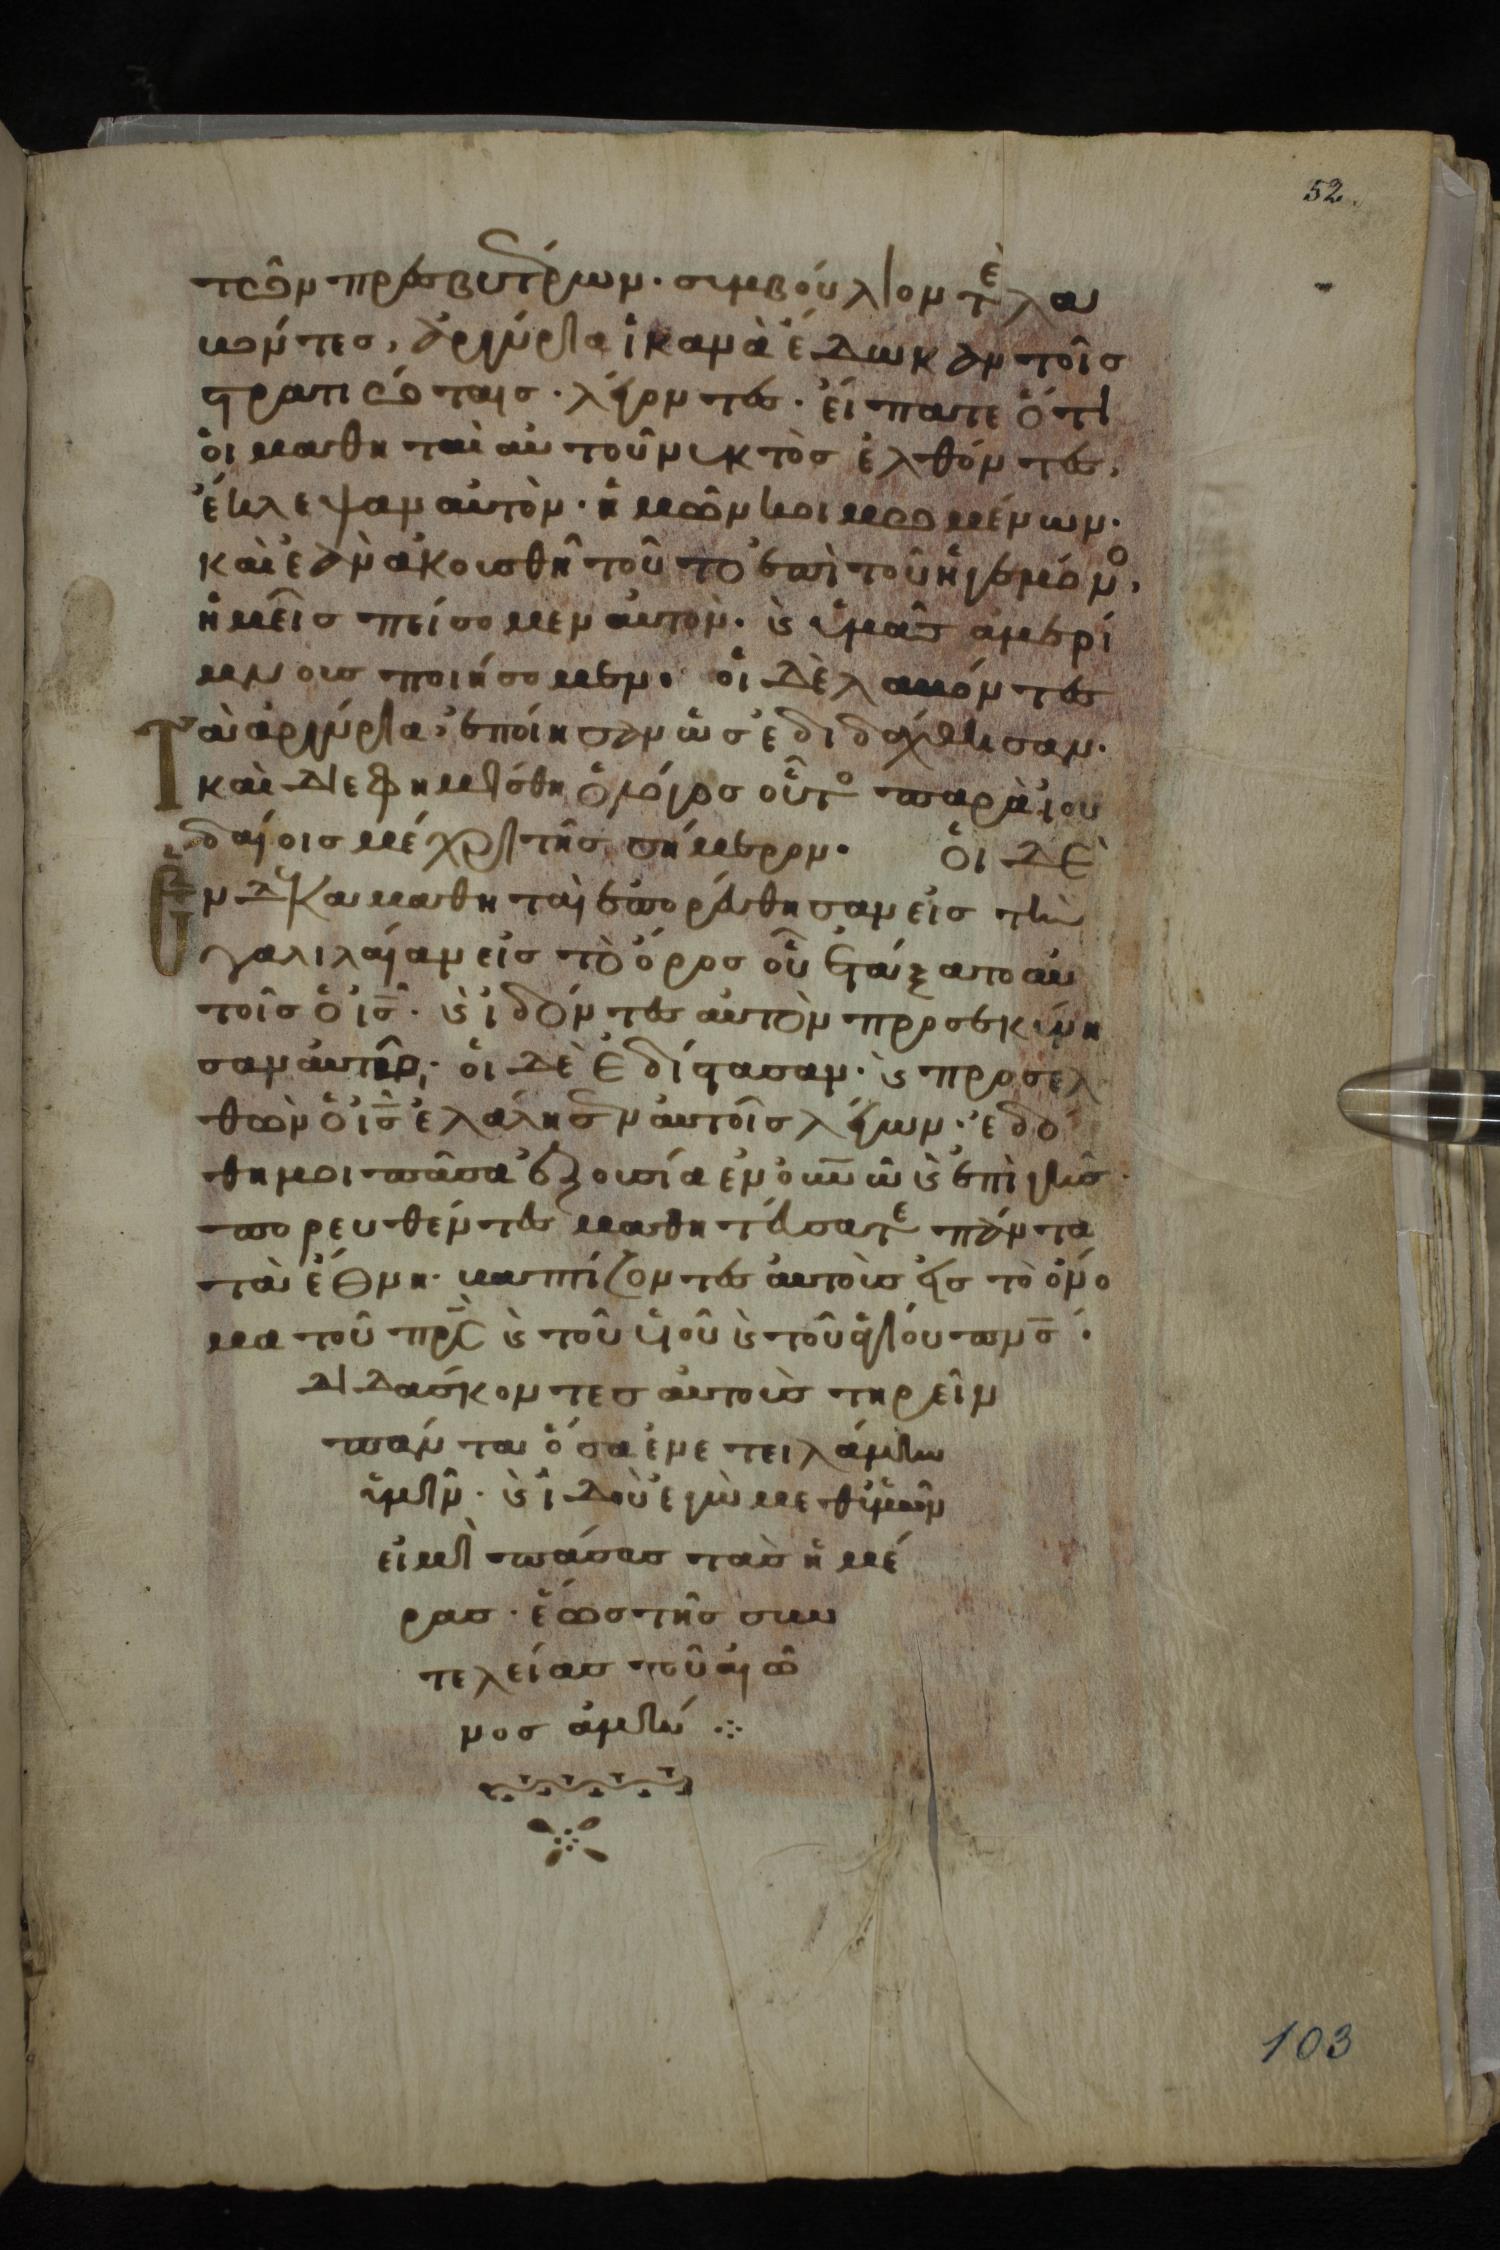 52.
τῶν πρεσβυτέρων. συμβούλιον τὲ λα
βόντες, ἀργύρια ἱκανὰ ἔδωκαν τοῖς
στρατιώταις. λέγοντες. εἴπατε ὅτι
οἱ μαθηταὶ αὐτοῦ νυκτὸς ἐλθόντες,
ἔκλεψαν αὐτὸν. ἡμῶν κοιμωμένων.
καὶ ἐὰν ἀκουσθῆ τοῦτο ἐπὶ τοῦ ἡγεμόνο,
ἡμεῖς πείσομεν αὐτὸν. ϗ ὑμᾶς ἀμερί
μνους ποιήσομεν. οἱ δὲ λαβόντες
Τὰ ἀργύρια, ἐποίησαν ὡς ἐδιδάχθησαν.
καὶ διεφημίσθη ὁ λόγος οὗτο παρὰ ἰου
δαίοις μέχρι τῆς σήμερον. Οἱ δὲ
ἕνδεκα μαθηταὶ ἐπορεύθησαν εἰς τὴν
γαλιλαίαν εἰς τὸ ὄρος οὗ ἐτάξατο αὐ
τοῖς ὁ ἰς. ϗ ἰδόντες αὐτὸν προσεκύνη
σαν αὐτῶ. οἱ δὲ ἐδίστασαν. ϗ προσελ
θὼν ὁ ἰς ἐλάλησεν αὐτοῖς λέγων. ἐδό
θη μοι πᾶσα ἐξουσία ἐν οὐνῶ ϗ ἐπὶ γῆς.
πορευθέντες μαθητεύσατε πάντα
τὰ ἔθνη. βαπτίζοντες αὐτοὺς εἰς τὸ ὄνο
μα τοῦ πρς ϗ τοῦ υἱοῦ ϗ τοῦ ἁγίου πνς.
διδάσκοντες αὐτοὺς τηρεῖν
πάντα ὅσα ἐνετειλάμην
ὑμῖν. ϗ ἰδοὺ ἐγὼ μεθ' ὑμῶν
εἰμὶ πάσας τὰς ἡμέ
ρας. ἕως τῆς συν
τελείας τοῦ αἰῶ
νος ἀμήν
103